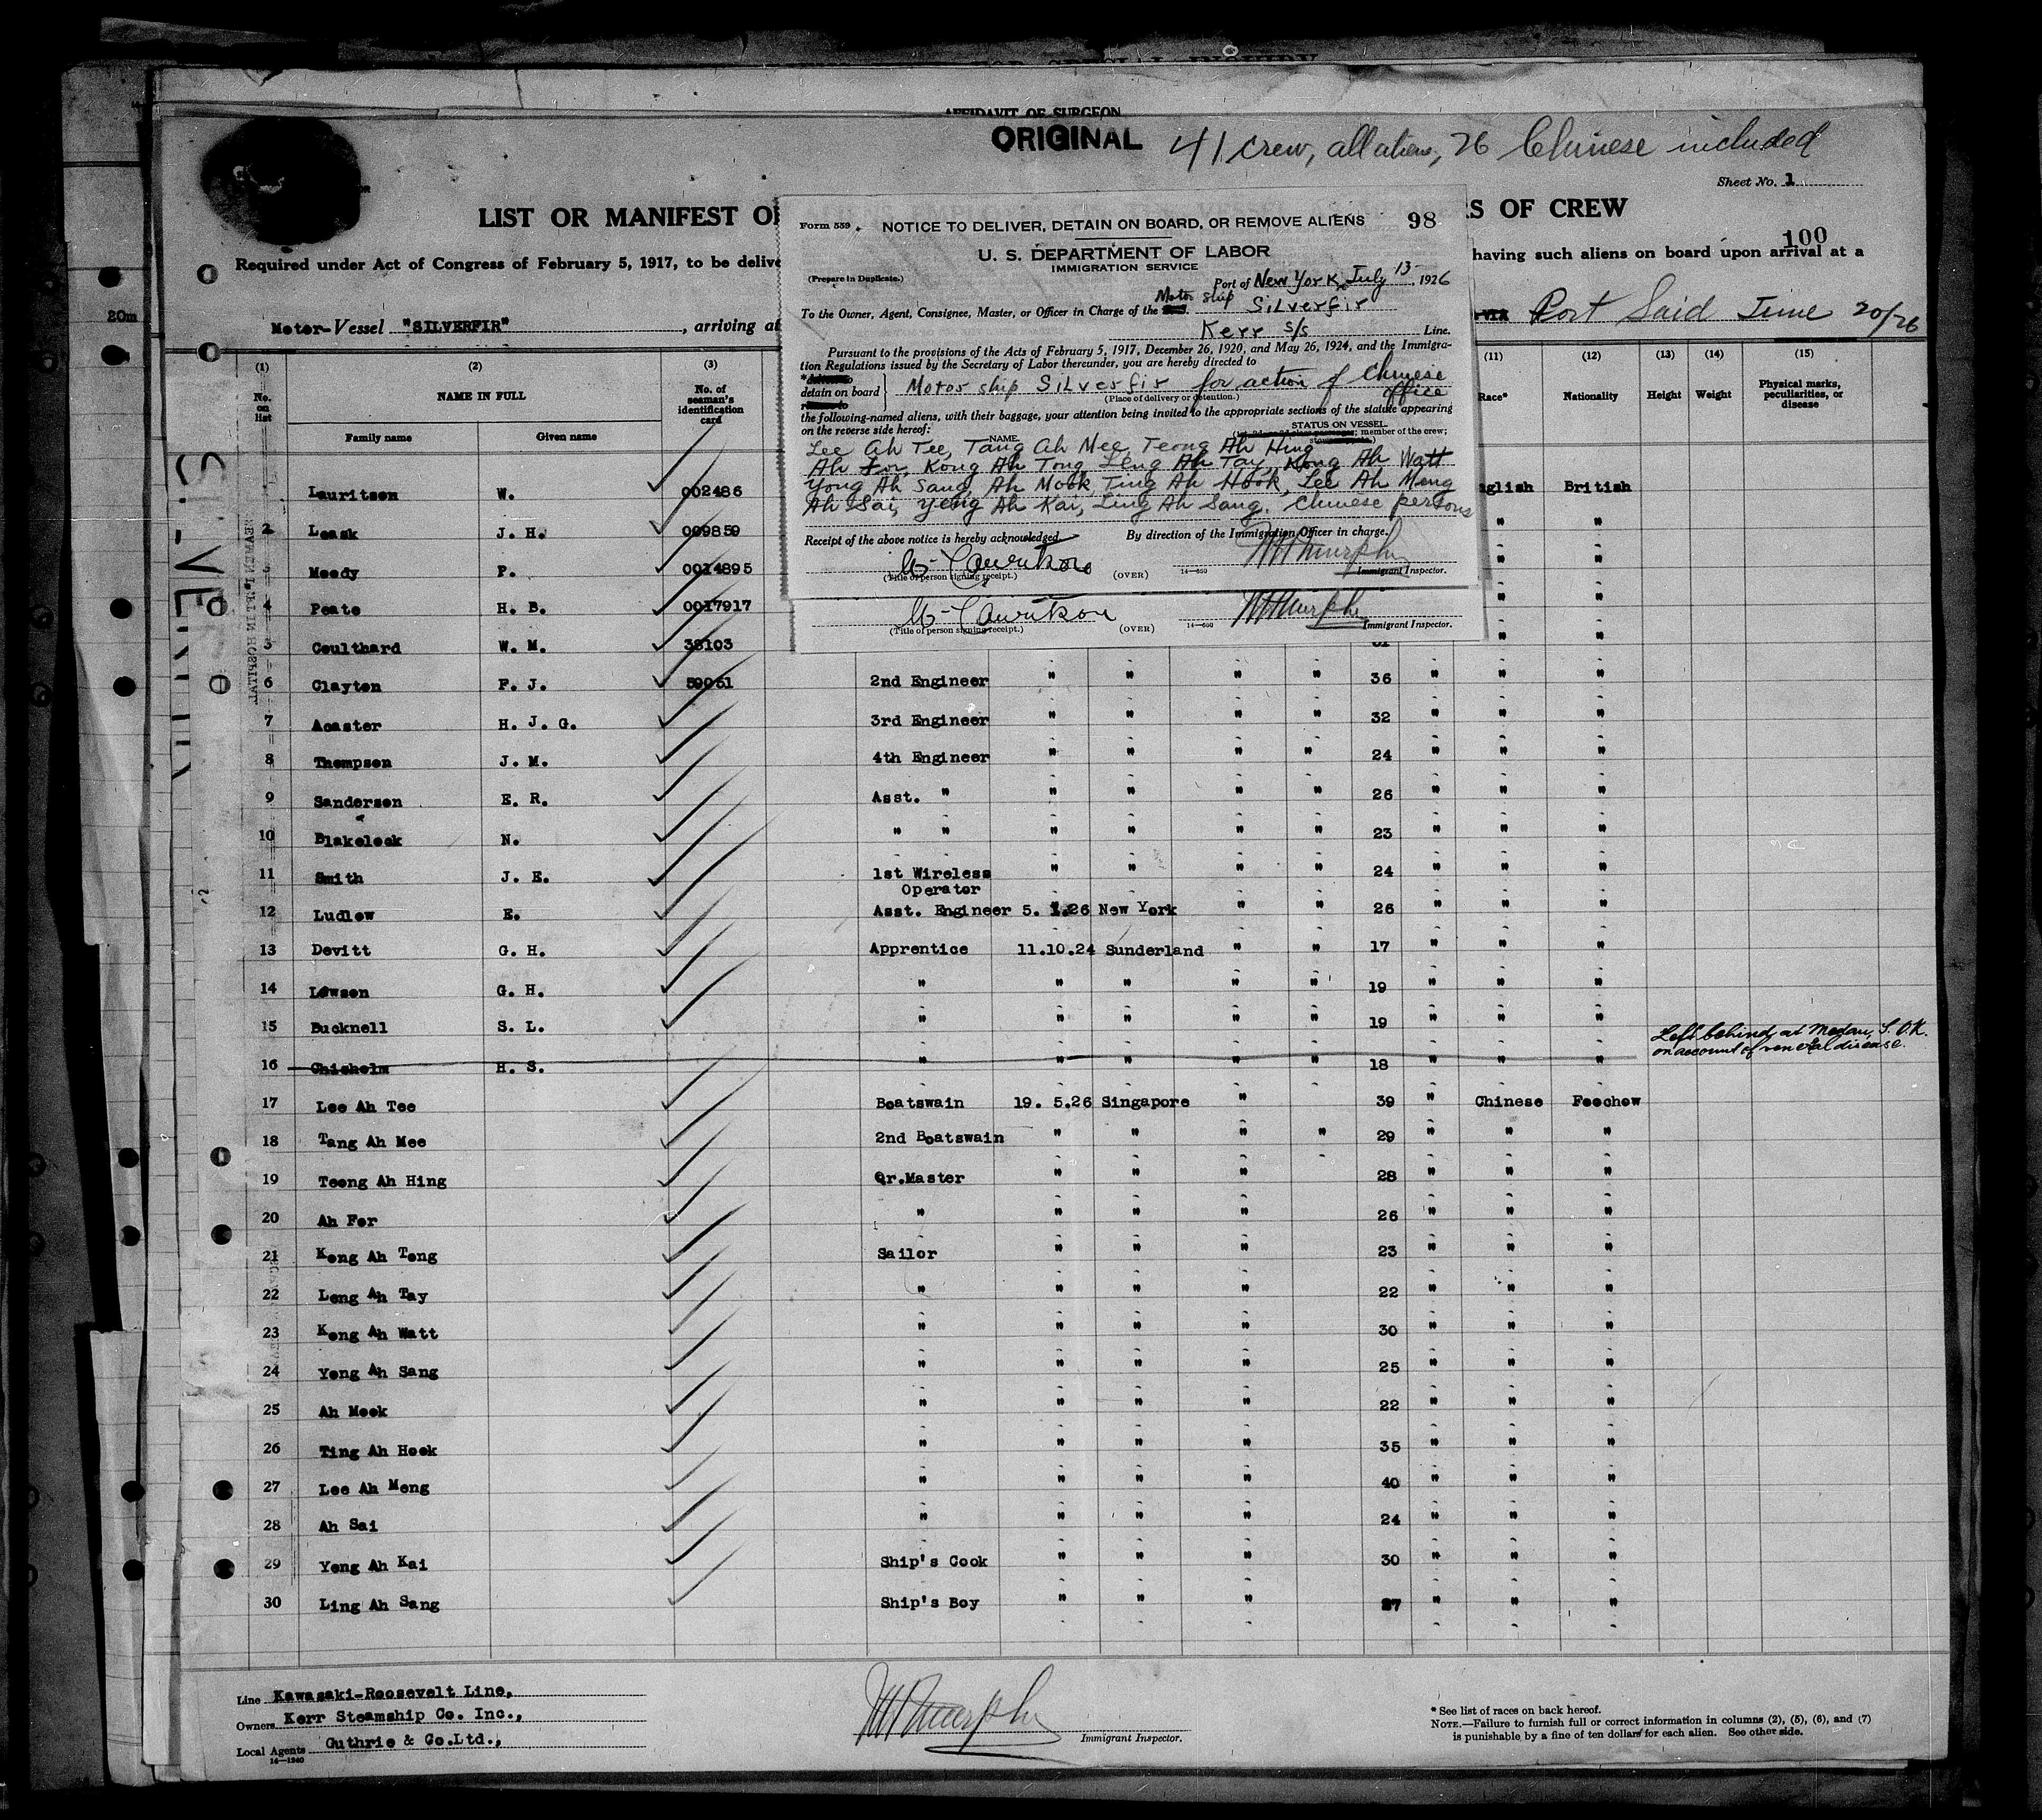 AFFIDAVIT OF SURGEON
ORIGINAL 41 crew, all aliens, 26 Chinese included
Sheet No. 1
LIST OR MANIFEST OF
RS OF CREW
100
Required under Act of Congress of February 5, 1917, to be delive
having such aliens on board upon arrival at a
Motor-Vessel "SILVERFIR", arriving at
Port Said June 20/26
SILVERFIR
20m
Form 559 NOTICE TO DELIVER, DETAIN ON BOARD, OR REMOVE ALIENS 98
U. S. DEPARTMENT OF LABOR
IMMIGRATION SERVICE
(Prepare in Duplicate.)
Port of New York, July 13, 1926
Motor ship
To the Owner, Agent, Consignee, Master, or Officer in Charge of the Silverfir
Kerr S/S Line.
Pursuant to the provisions of the Acts of February 5, 1917, December 26, 1920, and May 26, 1924, and the Immigra-
tion Regulations issued by the Secretary of Labor thereunder, you are hereby directed to
detain on board Motor ship Silverfir for action of Chinese office
(Place of delivery or detention.)
the following-named aliens, with their baggage, your attention being invited to the appropriate sections of the statute appearing
on the reverse side hereof:
STATUS ON VESSEL
NAME. member of the crew;
Lee Ah Tee, Tang Ah Mee, Teong Ah Hing
Ah For, Kong Ah Tong, Leng Ah Tay, Kong Ah Watt
Yong Ah Sang, Ah Mook, Ting Ah Hook, Lee Ah Meng
Ah Sai, Yeng Ah Kai, Ling Ah Sang. Chinese persons
Receipt of the above notice is hereby acknowledged By direction of the Immigration Officer in charge.
W. Lauritson
(Title of person signing receipt.) (OVER) 14—650 Immigrant Inspector.
W. Lauritson
(Title of person signing receipt.) (OVER) 14—650 Immigrant Inspector.
(1) (2) (3) (11) (12) (13) (14) (15)
No. on list NAME IN FULL No. of seaman's identification card Race* Nationality Height Weight Physical marks, peculiarities, or disease
Family name Given name
Lauritsen W. 002486 English British
2 Leask J. H. 009859 " "
3 Moody P. 0014895 " "
4 Peate H. B. 0017917 " "
5 Coulthard W. M. 38103 " "
6 Clayton F. J. 59051 2nd Engineer " " " " 36 " " "
7 Acaster H. J. G. 3rd Engineer " " " " 32 " " "
8 Thompson J. M. 4th Engineer " " " " 24 " " "
9 Sanderson E. R. Asst. " " " " " 26 " " "
10 Blakelock N. " " " " " " 23 " " "
11 Smith J. E. 1st Wireless Operator " " " " 24 " " "
12 Ludlow E. Asst. Engineer 5. 1.26 New York " " 26 " " "
13 Devitt G. H. Apprentice 11.10.24 Sunderland " " 17 " " "
14 Lawson G. H. " " " " " 19 " " "
15 Bucknell S. L. " " " " " 19 " " "
16 Chisholm H. S. " " " " " 18 " " " Left behind at Medan, S.O.K.
on account of venereal disease.
17 Lee Ah Tee Boatswain 19. 5.26 Singapore " 39 " Chinese Foochow
18 Tang Ah Mee 2nd Boatswain " " " " 29 " " "
19 Teong Ah Hing Qr.Master " " " 28 " " "
20 Ah For " " " " 26 " " "
21 Kong Ah Tong Sailor " " " 23 " " "
22 Leng Ah Tay " " " " 22 " " "
23 Kong Ah Watt " " " " 30 " " "
24 Yong Ah Sang " " " " 25 " " "
25 Ah Mook " " " " 22 " " "
26 Ting Ah Hook " " " " 35 " " "
27 Lee Ah Meng " " " " 40 " " "
28 Ah Sai " " " " 24 " " "
29 Yeng Ah Kai Ship's Cook " " " 30 " " "
30 Ling Ah Sang Ship's Boy " " " 27 " " "
Line Kawasaki-Roosevelt Line,
Owners Kerr Steamship Co. Inc.,
Local Agents Guthrie & Co.Ltd.,
14—1240
Immigrant Inspector.
* See list of races on back hereof.
NOTE.—Failure to furnish full or correct information in columns (2), (5), (6), and (7)
is punishable by a fine of ten dollars for each alien. See other side.